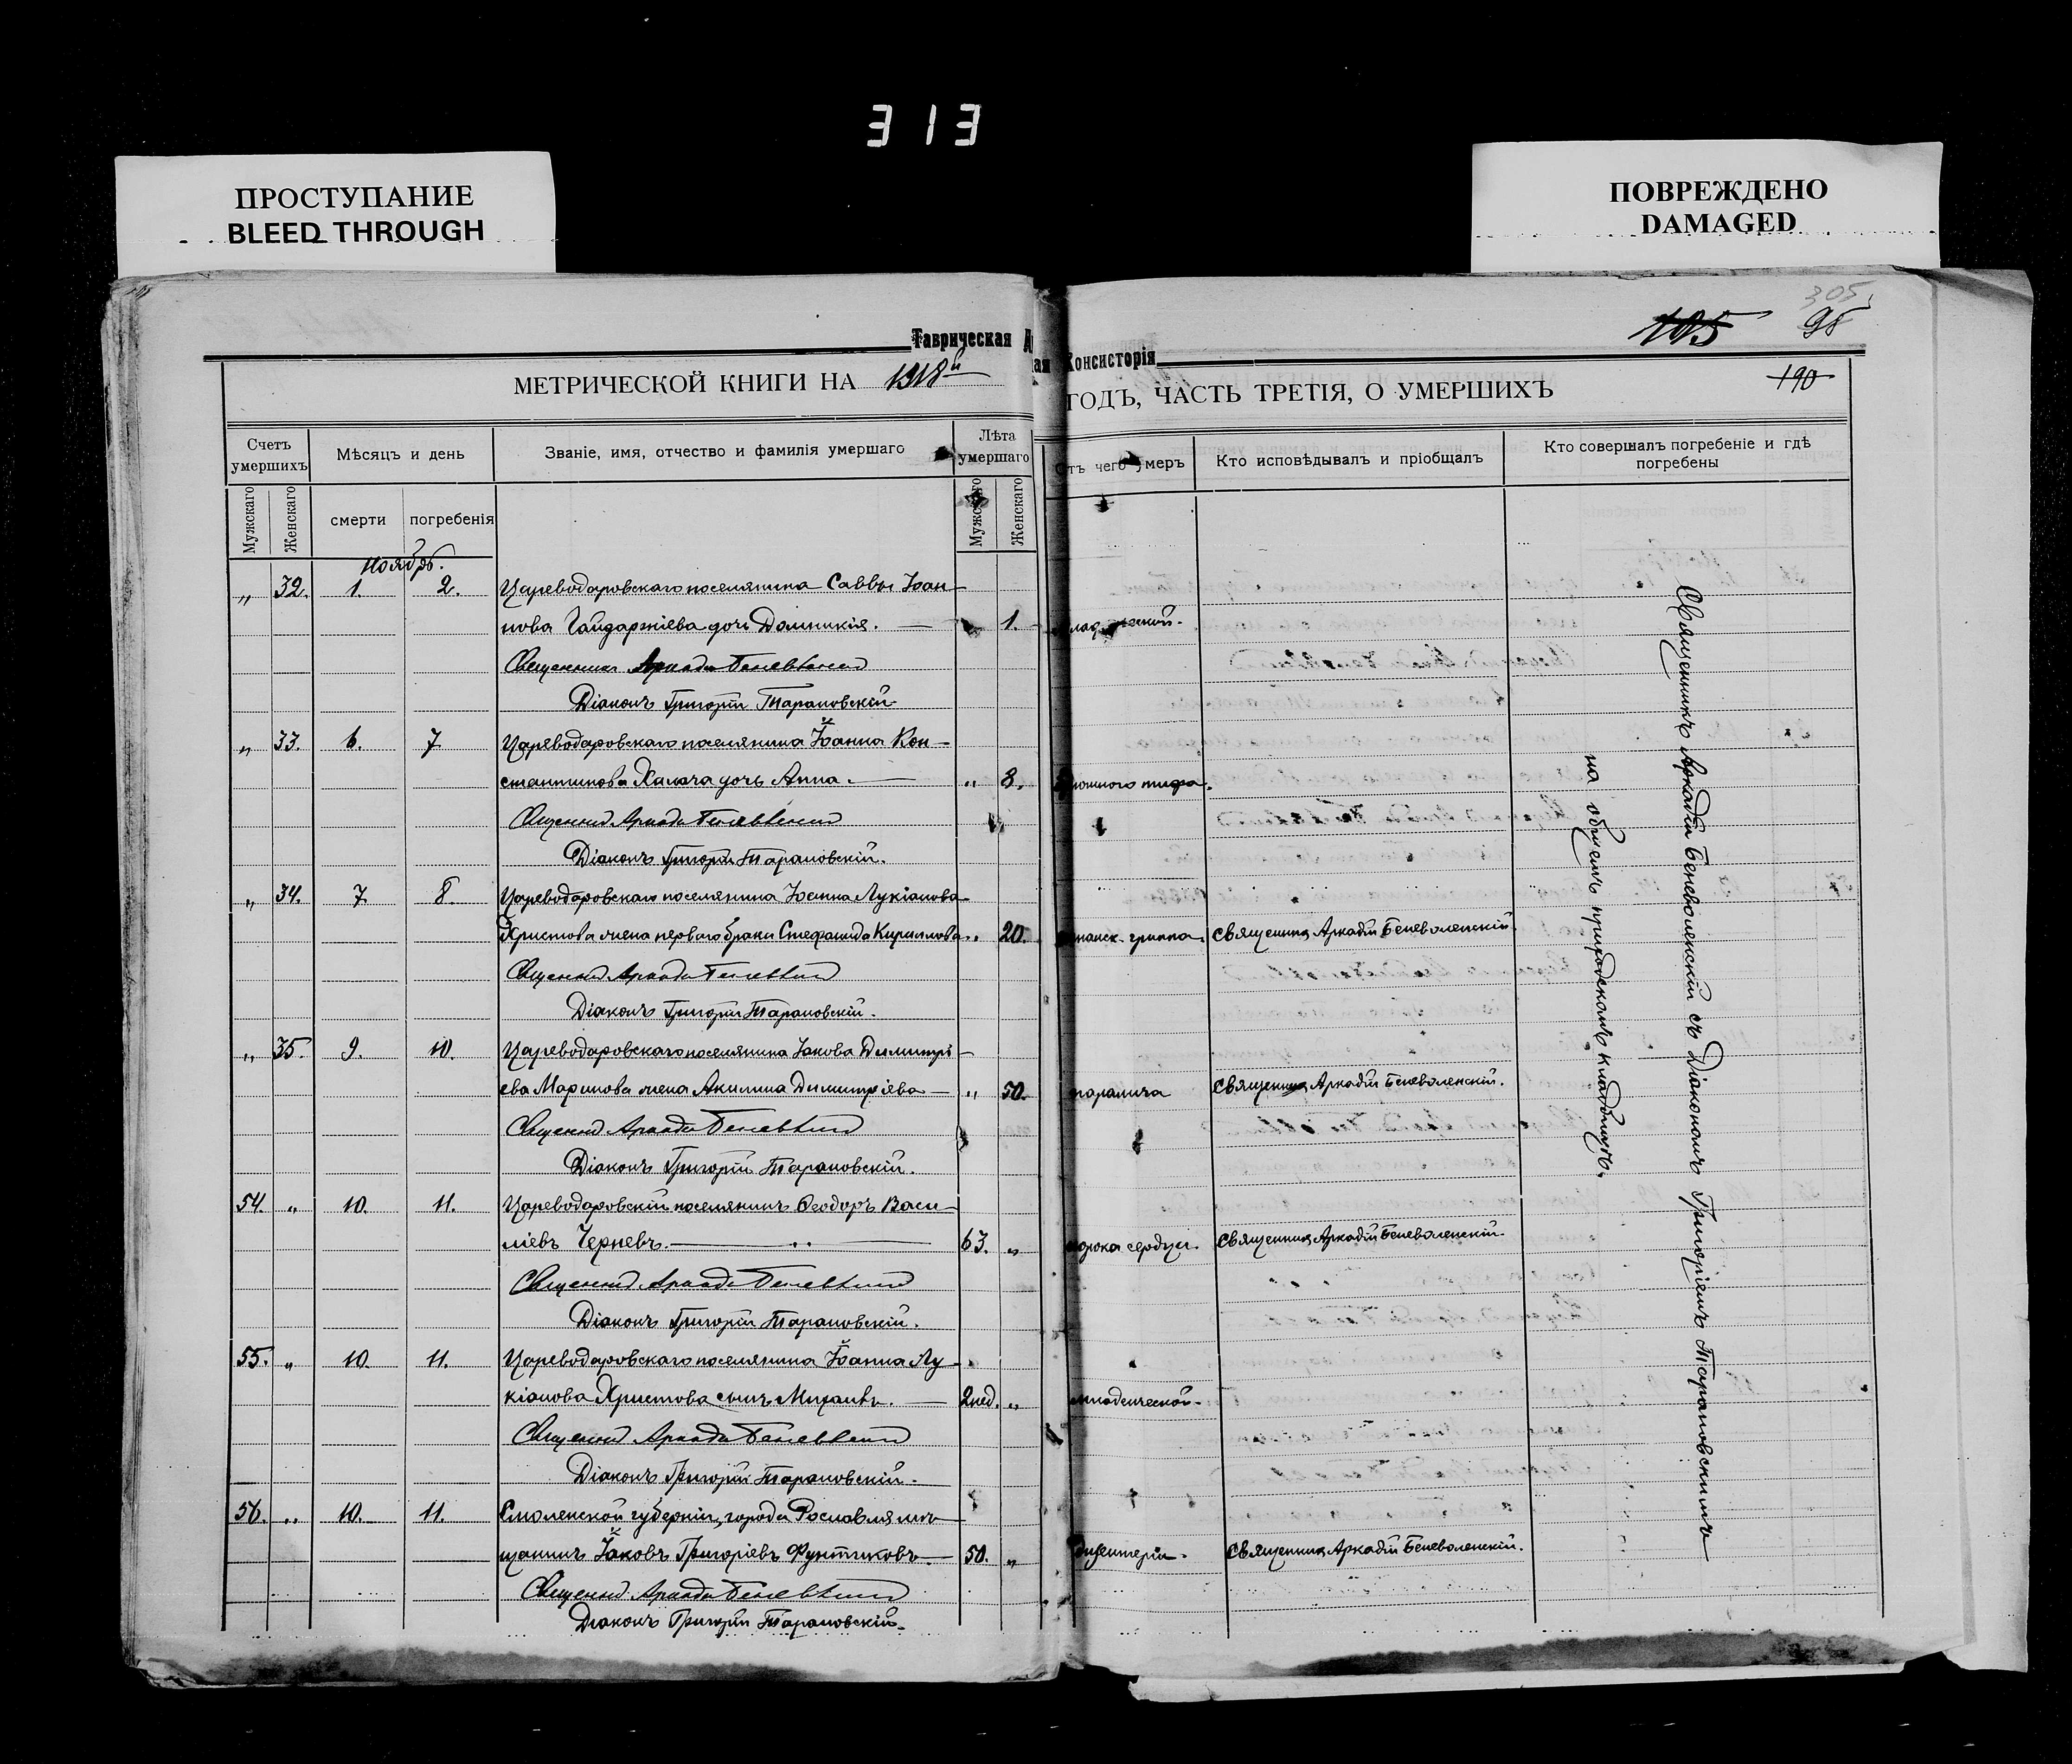 313
ПРОСТУПАНИЕ
BLEED THROUGH
ПОВРЕЖДЕНО
DAMAGED
305
105 95
Таврическая
Консисторія
МЕТРИЧЕСКОЙ КНИГИ НА 1918й ГОДЪ, ЧАСТЬ ТРЕТІЯ, О УМЕРШИХЪ
190
Счетъ умершихъ
Мѣсяцъ и день
Званіе, имя, отчество и фамилія умершаго
Лѣта умершаго
Отъ чего умеръ
Кто исповѣдывалъ и пріобщалъ
Кто совершалъ погребеніе и гдѣ погребены
Мужскаго Женскаго смерти погребенія Мужскаго Женскаго
Ноябрь.
„ 32. 1. 2. Цареводаровскаго поселянина Саввы Іоан-
нова Гайдаржіева дочь Домникія. 1.
Священникъ Аркадій Беневоленскій
Діаконъ Григорій Тарановскій
„ 33. 6. 7. Цареводаровскаго поселянина Іоанна Кон-
стантинова Халача дочь Анна. „ 8. брюшного тифа.
Священникъ Аркадій Беневоленскій
Діаконъ Григорій Тарановскій.
„ 34. 7. 8. Цареводаровскаго поселянина Іоанна Лукіанова
Христова жена перваго брака Стефанида Кириллова „ 20. испанск. гриппа. Священникъ Аркадій Беневоленскій.
Священникъ Аркадій Беневоленскій
Діаконъ Григорій Тарановскій.
„ 35. 9. 10. Цареводаровскаго поселянина Іакова Димитрі-
ева Маринова жена Акилина Димитріева „ 50. паралича Священникъ Аркадій Беневоленскій.
Священникъ Аркадій Беневоленскій
Діаконъ Григорій Тарановскій.
54. „ 10. 11. Цареводаровскій поселянинъ Ѳеодоръ Васи-
ліевъ Черневъ. 63. „ порока сердца. Священникъ Аркадій Беневоленскій.
Священникъ Аркадій Беневоленскій
Діаконъ Григорій Тарановскій.
55. „ 10. 11. Цареводаровскаго поселянина Іоанна Лу-
кіанова Христова сынъ Михаилъ. 2 нед. „ младенческой.
Священникъ Аркадій Беневоленскій
Діаконъ Григорій Тарановскій.
56. „ 10. 11. Смоленской губерніи, города Рославля мѣ-
щанинъ Іаковъ Григоріевъ Фунтиковъ. 50. „ дизентеріи. Священникъ Аркадій Беневоленскій.
Священникъ Аркадій Беневоленскій
Діаконъ Григорій Тарановскій.
Священникъ Аркадій Беневоленскій съ Діакономъ Григоріемъ Тарановскимъ
на общемъ приходскомъ кладбищѣ.